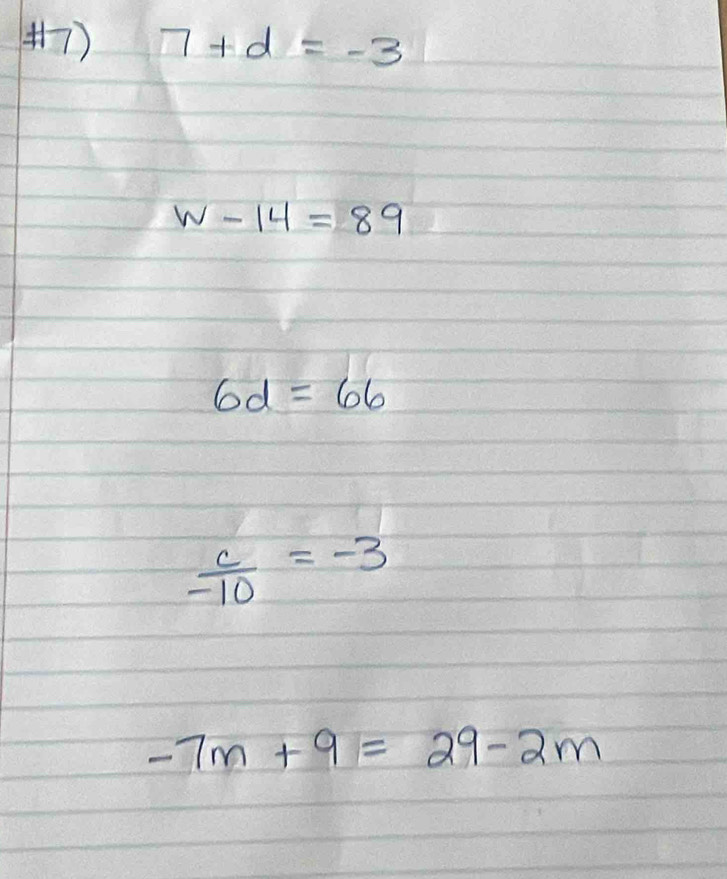 #7) 7 + d = -3
w - 14 = 89
6d = 66
c/-10 = -3
-7m + 9 = 29 - 2m